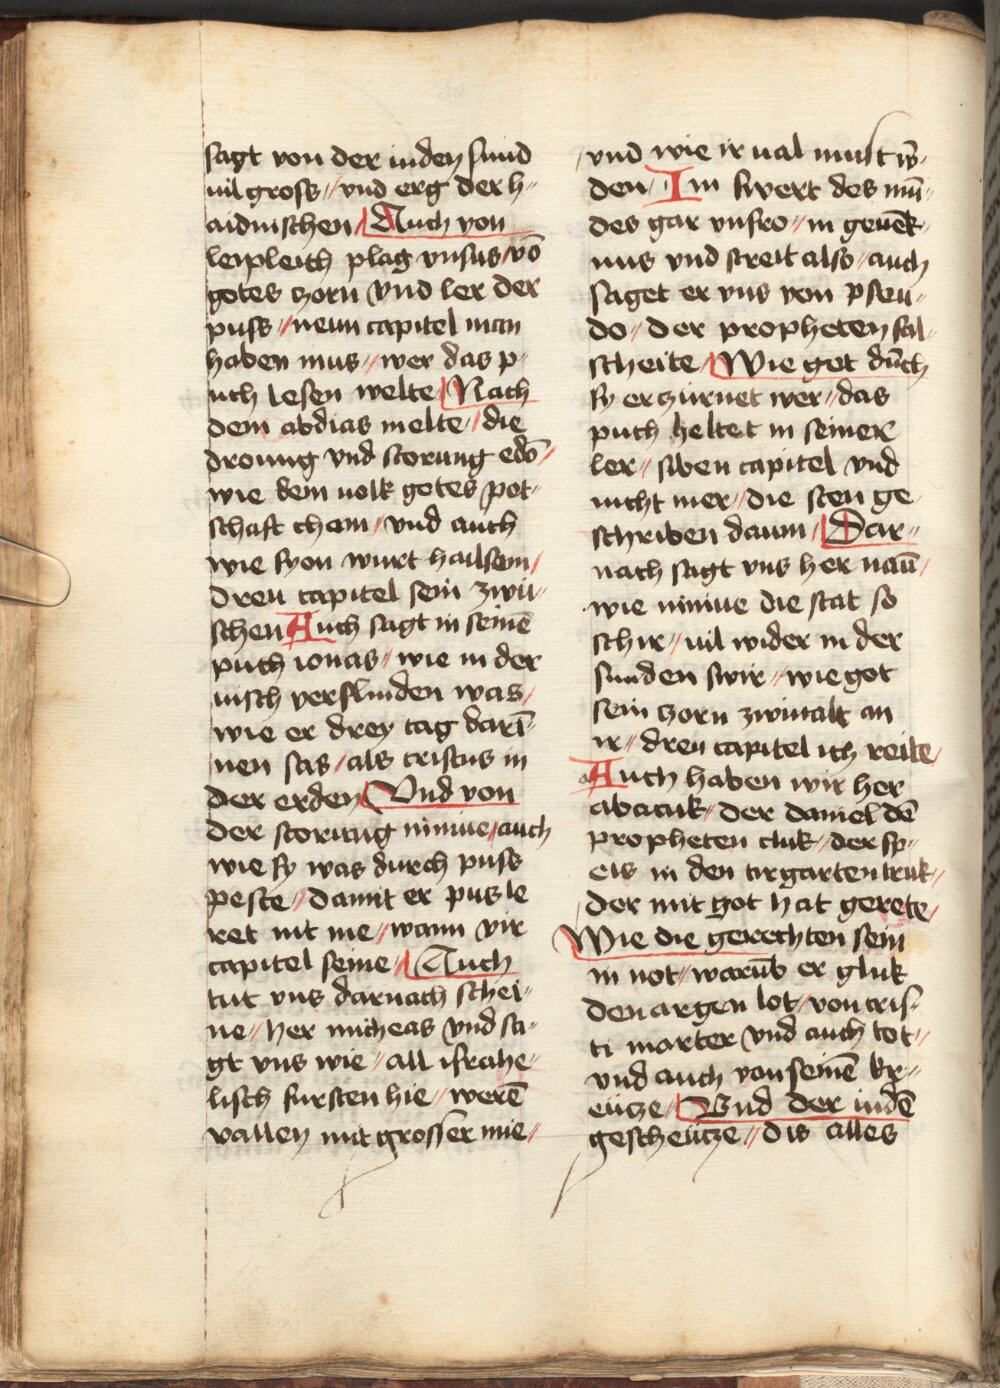 sagt von der inden sund
uil gross // vnd erg der h//
aidnischen / Auch von
leipleich plag vnsus / vō
gotes zorn vnd ler der
puss // neun capitel man
haben mus // wer das p-
uch lesen welte / Nach
dem abdias melte // die
droung vnd storung edō //
wie dem uolk gotes pot-
schaft chom // vnd auch
wie syon wurt hailsem /
dreu capitel sein zwi//
schen Auch sagt in seinē
puch ionas // wie in der
uisch verslinden was /
wie er drey tag darī-
nen sas / als cristus in
der erden / Vnd von
der storung niniue / auch
wie sy was durch puss
peste // damit er pus le
ret nit me // wann vir
capitel seine // Auch
tut vns darnach schei-
ne // her micheas vnd sa-
gt vns wie // all israhe-
lisch fursten hie // werē
vallen mit grosser mie /
/ vnd wie ir ual must w̄-
den / Im swert des mū-
des gar vnfro // in geuēk
nus vnd streit also // auch
saget er vns vom pseu//
do // der propheten fal-
scheite / Wie got dūch
sy erzürnet wer // das
puch heltet in seiner
ler // siben capitel vnd
nicht mer // die sten ge
schriben daunn / Dar//
nach sagt vns her naū /
wie niniue die stat so
schir // uil wider in der
sunden swir // wie got
sein zorn zwiualt an
ir // dreu capitel ich reite /
Auch haben wir her
abacuk // der daniel dē
propheten cluk // der sp//
eis in den tirgarten truk //
der mit got hat gerete /
Wie die gerechten sein
in not // warūb er gluk
den argen lot // von cris-
ti marter vnd auch tot //
vnd auch von seinē kr//
eütze // Vnd der indē
gescheütze // dis alles